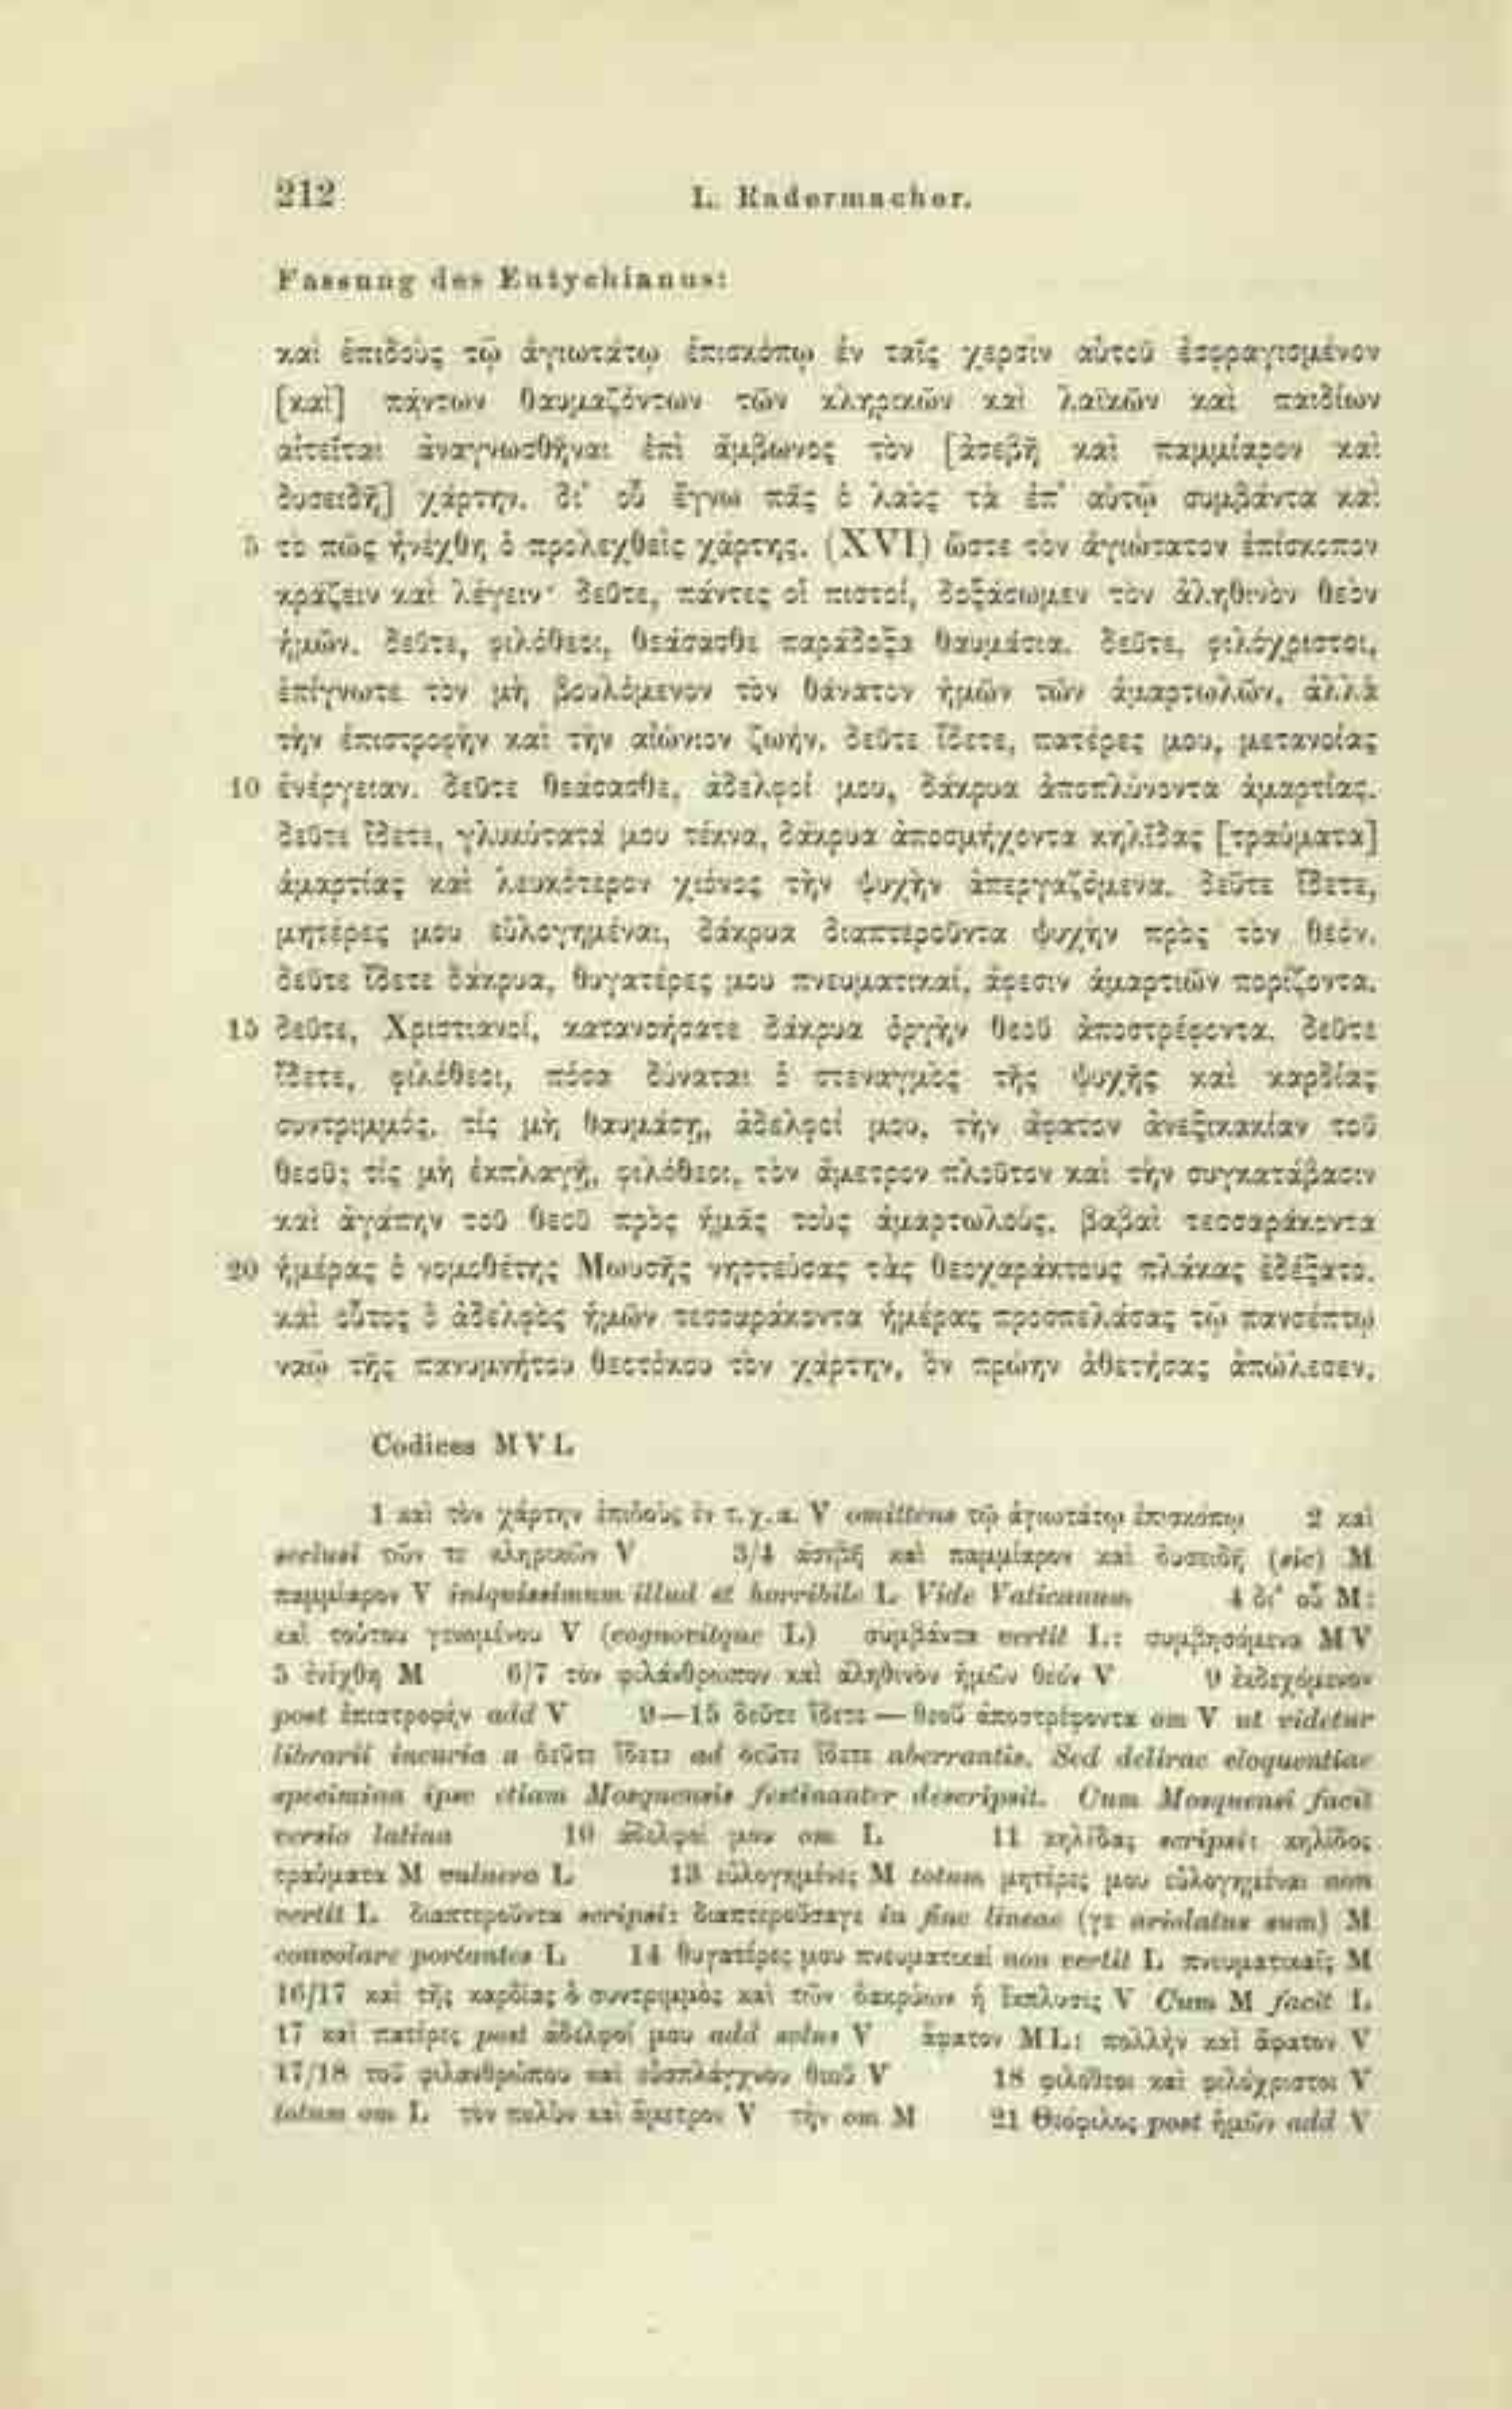 212
L. Radermacher.
Fassung des Eutychianus:
καὶ ἐπιδοὺς τῷ ἁγιωτάτῳ ἐπισκόπῳ ἐν ταῖς χερσὶν αὐτοῦ ἐσφραγισμένον
[καὶ] πάντων θαυμαζόντων τῶν κληρικῶν καὶ λαϊκῶν καὶ παιδίων
αἰτεῖται ἀναγνωσθῆναι ἐπὶ ἄμβωνος τὸν [ἀσεβῆ καὶ παμμίαρον καὶ
δυσειδῆ] χάρτην. δι' οὗ ἔγνω πᾶς ὁ λαὸς τὰ ἐπ' αὐτῷ συμβάντα καὶ
5 τὸ πῶς ἠνέχθη ὁ προλεχθεὶς χάρτης. (XVI) ὥστε τὸν ἁγιώτατον ἐπίσκοπον
κράζειν καὶ λέγειν· δεῦτε, πάντες οἱ πιστοί, δοξάσωμεν τὸν ἀληθινὸν θεὸν
ἡμῶν. δεῦτε, φιλόθεοι, θεάσασθε παράδοξα θαυμάσια. δεῦτε, φιλόχριστοι,
ἐπίγνωτε τὸν μὴ βουλόμενον τὸν θάνατον ἡμῶν τῶν ἁμαρτωλῶν, ἀλλὰ
τὴν ἐπιστροφὴν καὶ τὴν αἰώνιον ζωήν. δεῦτε ἴδετε, πατέρες μου, μετανοίας
10 ἐνέργειαν. δεῦτε θεάσασθε, ἀδελφοί μου, δάκρυα ἀποπλύνοντα ἁμαρτίας.
δεῦτε ἴδετε, γλυκύτατά μου τέκνα, δάκρυα ἀποσμήχοντα κηλῖδας [τραύματα]
ἁμαρτίας καὶ λευκότερον χιόνος τὴν ψυχὴν ἀπεργαζόμενα. δεῦτε ἴδετε,
μητέρες μου εὐλογημέναι, δάκρυα διαπτεροῦντα ψυχὴν πρὸς τὸν θεόν.
δεῦτε ἴδετε δάκρυα, θυγατέρες μου πνευματικαί, ἄφεσιν ἁμαρτιῶν πορίζοντα.
15 δεῦτε, Χριστιανοί, κατανοήσατε δάκρυα ὀργὴν θεοῦ ἀποστρέφοντα. δεῦτε
ἴδετε, φιλόθεοι, πόσα δύναται ὁ στεναγμὸς τῆς ψυχῆς καὶ καρδίας
συντριμμός. τίς μὴ θαυμάσῃ, ἀδελφοί μου, τὴν ἄφατον ἀνεξικακίαν τοῦ
θεοῦ; τίς μὴ ἐκπλαγῇ, φιλόθεοι, τὸν ἄμετρον πλοῦτον καὶ τὴν συγκατάβασιν
καὶ ἀγάπην τοῦ θεοῦ πρὸς ἡμᾶς τοὺς ἁμαρτωλούς. βαβαὶ τεσσαράκοντα
20 ἡμέρας ὁ νομοθέτης Μωυσῆς νηστεύσας τὰς θεοχαράκτους πλάκας ἐδέξατο.
καὶ οὗτος ὁ ἀδελφὸς ἡμῶν τεσσαράκοντα ἡμέρας προσπελάσας τῷ πανσέπτῳ
ναῷ τῆς πανυμνήτου θεοτόκου τὸν χάρτην, ὃν πρώην ἀθετήσας ἀπώλεσεν,
Codices MVL
1 καὶ τὸν χάρτην ἐπιδοὺς ἐν τ. χ. α. V omittens τῷ ἁγιωτάτῳ ἐπισκόπῳ 2 καὶ
seclusi τῶν τε κληρικῶν V 3/4 ἀσεβῆ καὶ παμμίαρον καὶ δυσειδῆ (sic) M
παμμίαρον V iniquissimum illud et horribile L Vide Vaticanum 4 δι' οὗ M:
καὶ τούτου γενομένου V (cognovitque L) συμβάντα vertit L: συμβησόμενα MV
5 ἐνέχθη M 6/7 τὸν φιλάνθρωπον καὶ ἀληθινὸν ἡμῶν θεόν V 9 ἐκδεχόμενον
post ἐπιστροφὴν add V 9—15 δεῦτε ἴδετε — θεοῦ ἀποστρέφοντα om V ut videtur
librarii incuria a δεῦτε ἴδετε ad δεῦτε ἴδετε aberrantis. Sed delirae eloquentiae
specimina ipse etiam Mosquensis festinanter descripsit. Cum Mosquensi facit
versio latina 10 ἀδελφοί μου om L 11 κηλῖδας scripsi: κηλῖδος
τραύματα M vulnera L 13 εὐλογημένες M totum μητέρες μου εὐλογημέναι non
vertit L διαπτεροῦντα scripsi: διαπτεροῦσαγε in fine lineae (γε ariolatus sum) M
convolare portantes L 14 θυγατέρες μου πνευματικαί non vertit L πνευματικαῖς M
16/17 καὶ τῆς καρδίας ὁ συντριμμὸς καὶ τῶν δακρύων ἡ ἔκπλυσις V Cum M facit L
17 καὶ πατέρες post ἀδελφοί μου add solus V ἄφατον ML: πολλὴν καὶ ἄφατον V
17/18 τοῦ φιλανθρώπου καὶ εὐσπλάγχνου θεοῦ V 18 φιλόθεοι καὶ φιλόχριστοι V
totum om L τὸν πολὺν καὶ ἄμετρον V τὴν om M 21 Θεόφιλος post ἡμῶν add V